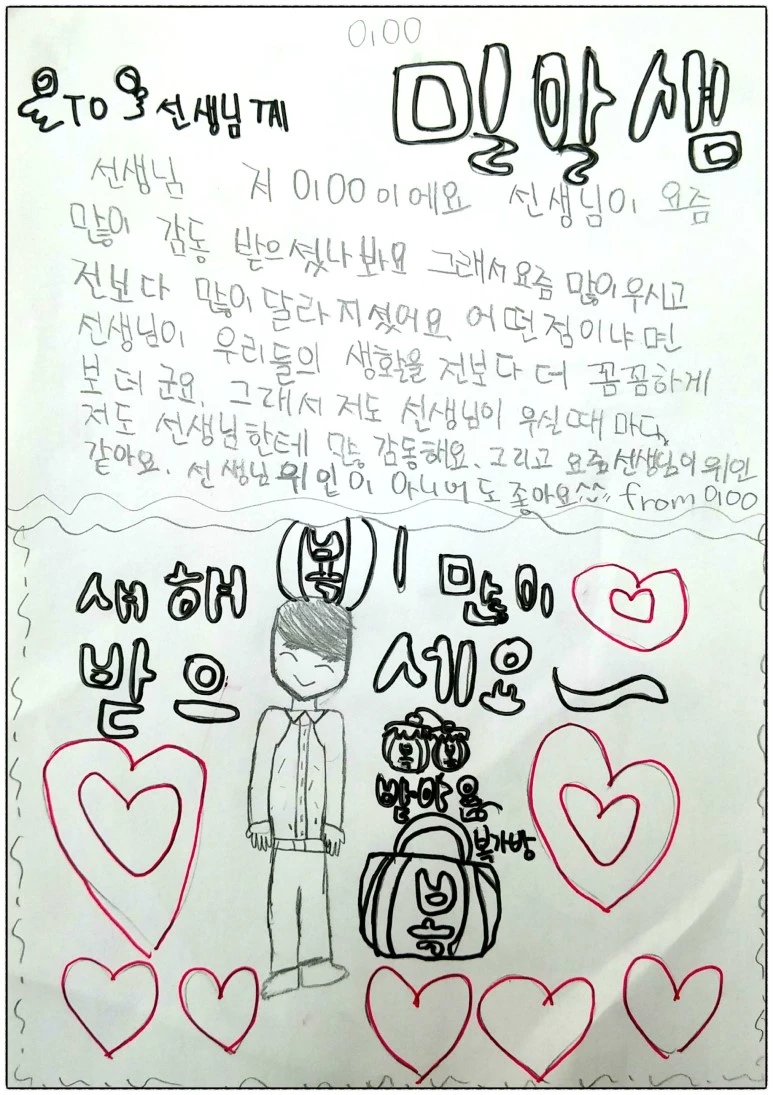 이OO
TO 선생님께
밀알샘
선생님 저 이OO이에요 선생님이 요즘
많이 감동 받으셨나봐요 그래서 요즘 많이 우시고
전보다 많이 달라지셨어요. 어떤점이냐면
선생님이 우리들의 생활을 전보다 더 꼼꼼하게
보더군요. 그래서 저도 선생님이 우실때마다
저도 선생님한테 많이 감동해요. 그리고 요즘 선생님이 위인
같아요. 선생님 위인이 아니어도 좋아요^^ from 이OO
새해 복! 많이
받으세요~
복 복
밀알샘
복가방
복